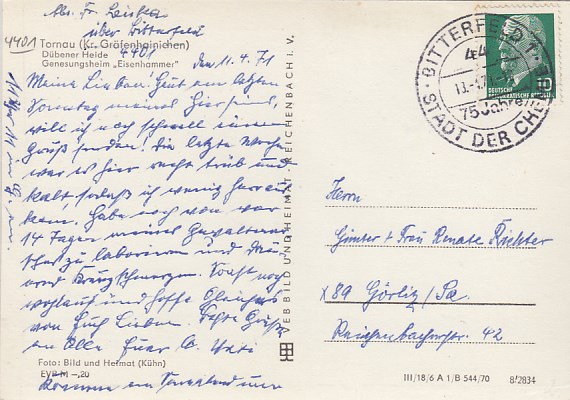 Abs. Fr.
über Bitterfeld
4401
Tornau (Kr. Gräfenhainichen)
4401
Dübener Heide
Genesungsheim „Eisenhammer"
den 11.4.71
Meine Lieben! Heut am letzten
Sonntag meines Hierseins,
will ich noch schnell einen
Gruß senden! Die letzte Woche
war es hier recht trüb und
kalt, sodaß ich wenig heraus
kam. Habe noch von vor
14 Tagen meines
zu laborieren und
Kreuzschmerzen. Sonst noch
wohlauf und hoffe Gleiches
von Euch Lieben. Herzl. Grüße
an Alle Euer
Foto: Bild und Heimat (Kühn)
EVP M –,20
komme am Sonnabend
VEB BILD UND HEIMAT · REICHENBACH i. V.
BITTERFELD 1
44
11.-4.71
75 Jahre
STADT DER CHEMIE
DEUTSCHE
DEMOKRATISCHE REPUBLIK
10
Herrn
Günter + Frau Renate Richter
X 89 Görlitz/Sa.
Reichenbacherstr. 42
III/18/6 A 1/B 544/70
8/2834